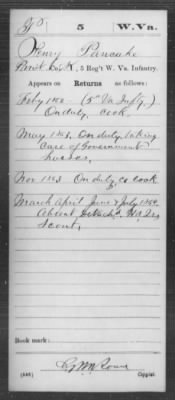 P | 5 | W. Va.
Henry Pancake
Pvt. Co. K, 5 Reg't W. Va. Infantry.
Appears on Returns as follows:
Feby 1862 (5" Va Infty.)
On duty, cook.
May 1863, On duty taking
care of Government
horses.
Nov 1863 On duty Co cook
March April June & July 1864
Absent Detach'd, Hd Qrs
Scout.
Book mark:
Copyist.